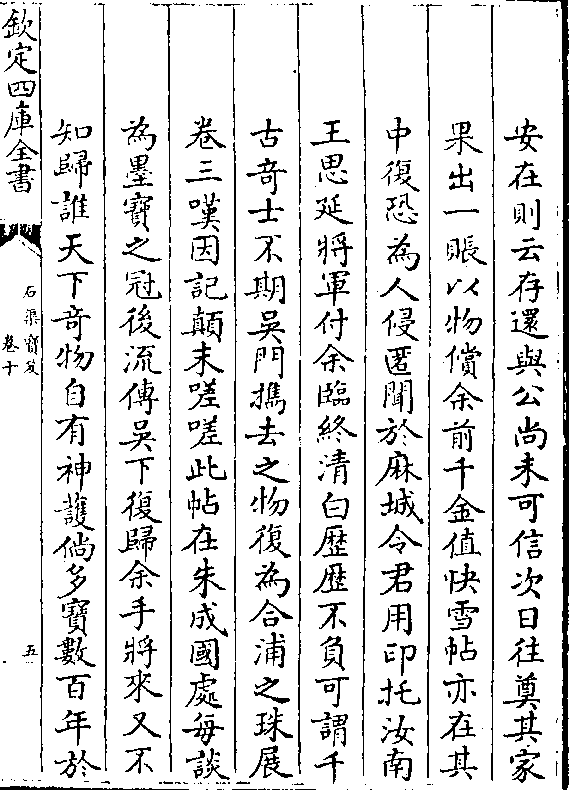 安在則云存還與公尚未可信次日往奠其家
果出一賬以物償余前千金值快雪帖亦在其
中復恐為人侵匿聞於麻城令君用印托汝南
王思延將軍付余臨終清白歷歷不負可謂千
古奇士不期吳門攜去之物復為合浦之珠展
卷三嘆因記顛末嗟嗟此帖在朱成國處每談
為墨寶之冠後流傳吳下復歸余手將來又不
知歸誰天下奇物自有神護倘多寶數百年於
欽定四庫全書
石渠寶笈
卷十
五